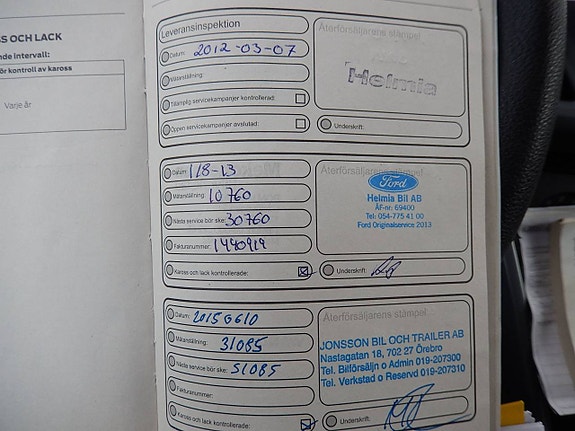 SS OCH LACK
nde intervall:
ör kontroll av kaross
Varje år
Leveransinspektion
Datum: 2012-03-07
Mätarställning:
Tillämplig servicekampanjer kontrollerad:
Öppen servicekampanjer avslutad:
Återförsäljarens stämpel
Helmia
Underskrift:
Datum: 118-13
Mätarställning: 10760
Nästa service bör ske: 30760
Fakturanummer: 1440919
Kaross och lack kontrollerade:
Återförsäljarens stämpel
Ford
Helmia Bil AB
ÅF-nr: 69400
Tel: 054-775 41 00
Ford Originalservice 2013
Underskrift:
Datum: 20150610
Mätarställning: 31085
Nästa service bör ske: 51085
Fakturanummer:
Kaross och lack kontrollerade:
Återförsäljarens stämpel
JONSSON BIL OCH TRAILER AB
Nastagatan 18, 702 27 Örebro
Tel. Bilförsäljn o Admin 019-207300
Tel. Verkstad o Reservd 019-207310
Underskrift: